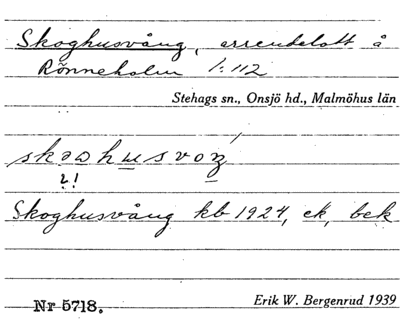 Skoghusvång, arrendelott å
Rönneholm 1:112
Stehags sn., Onsjö hd., Malmöhus län
?!
Skoghusvång kb 1924, ek, bek
Nr 5718.
Erik W. Bergenrud 1939